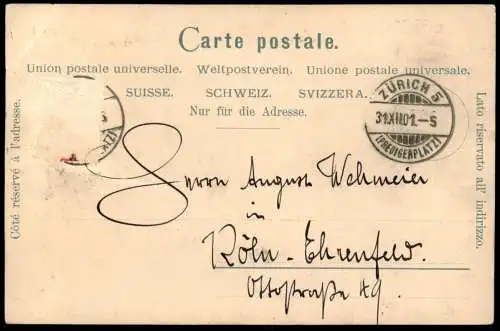 Carte postale.
Union postale universelle. Weltpostverein. Unione postale universale.
SUISSE. SCHWEIZ. SVIZZERA.
Nur für die Adresse.
Côté réservé à l'adresse.
Lato riservato all' indirizzo.
ZÜRICH 5
31.XII.01.-5
(PREDIGERPLATZ)
Herrn August Wehmeier
in
Köln-Ehrenfeld.
Ottostraße 49.